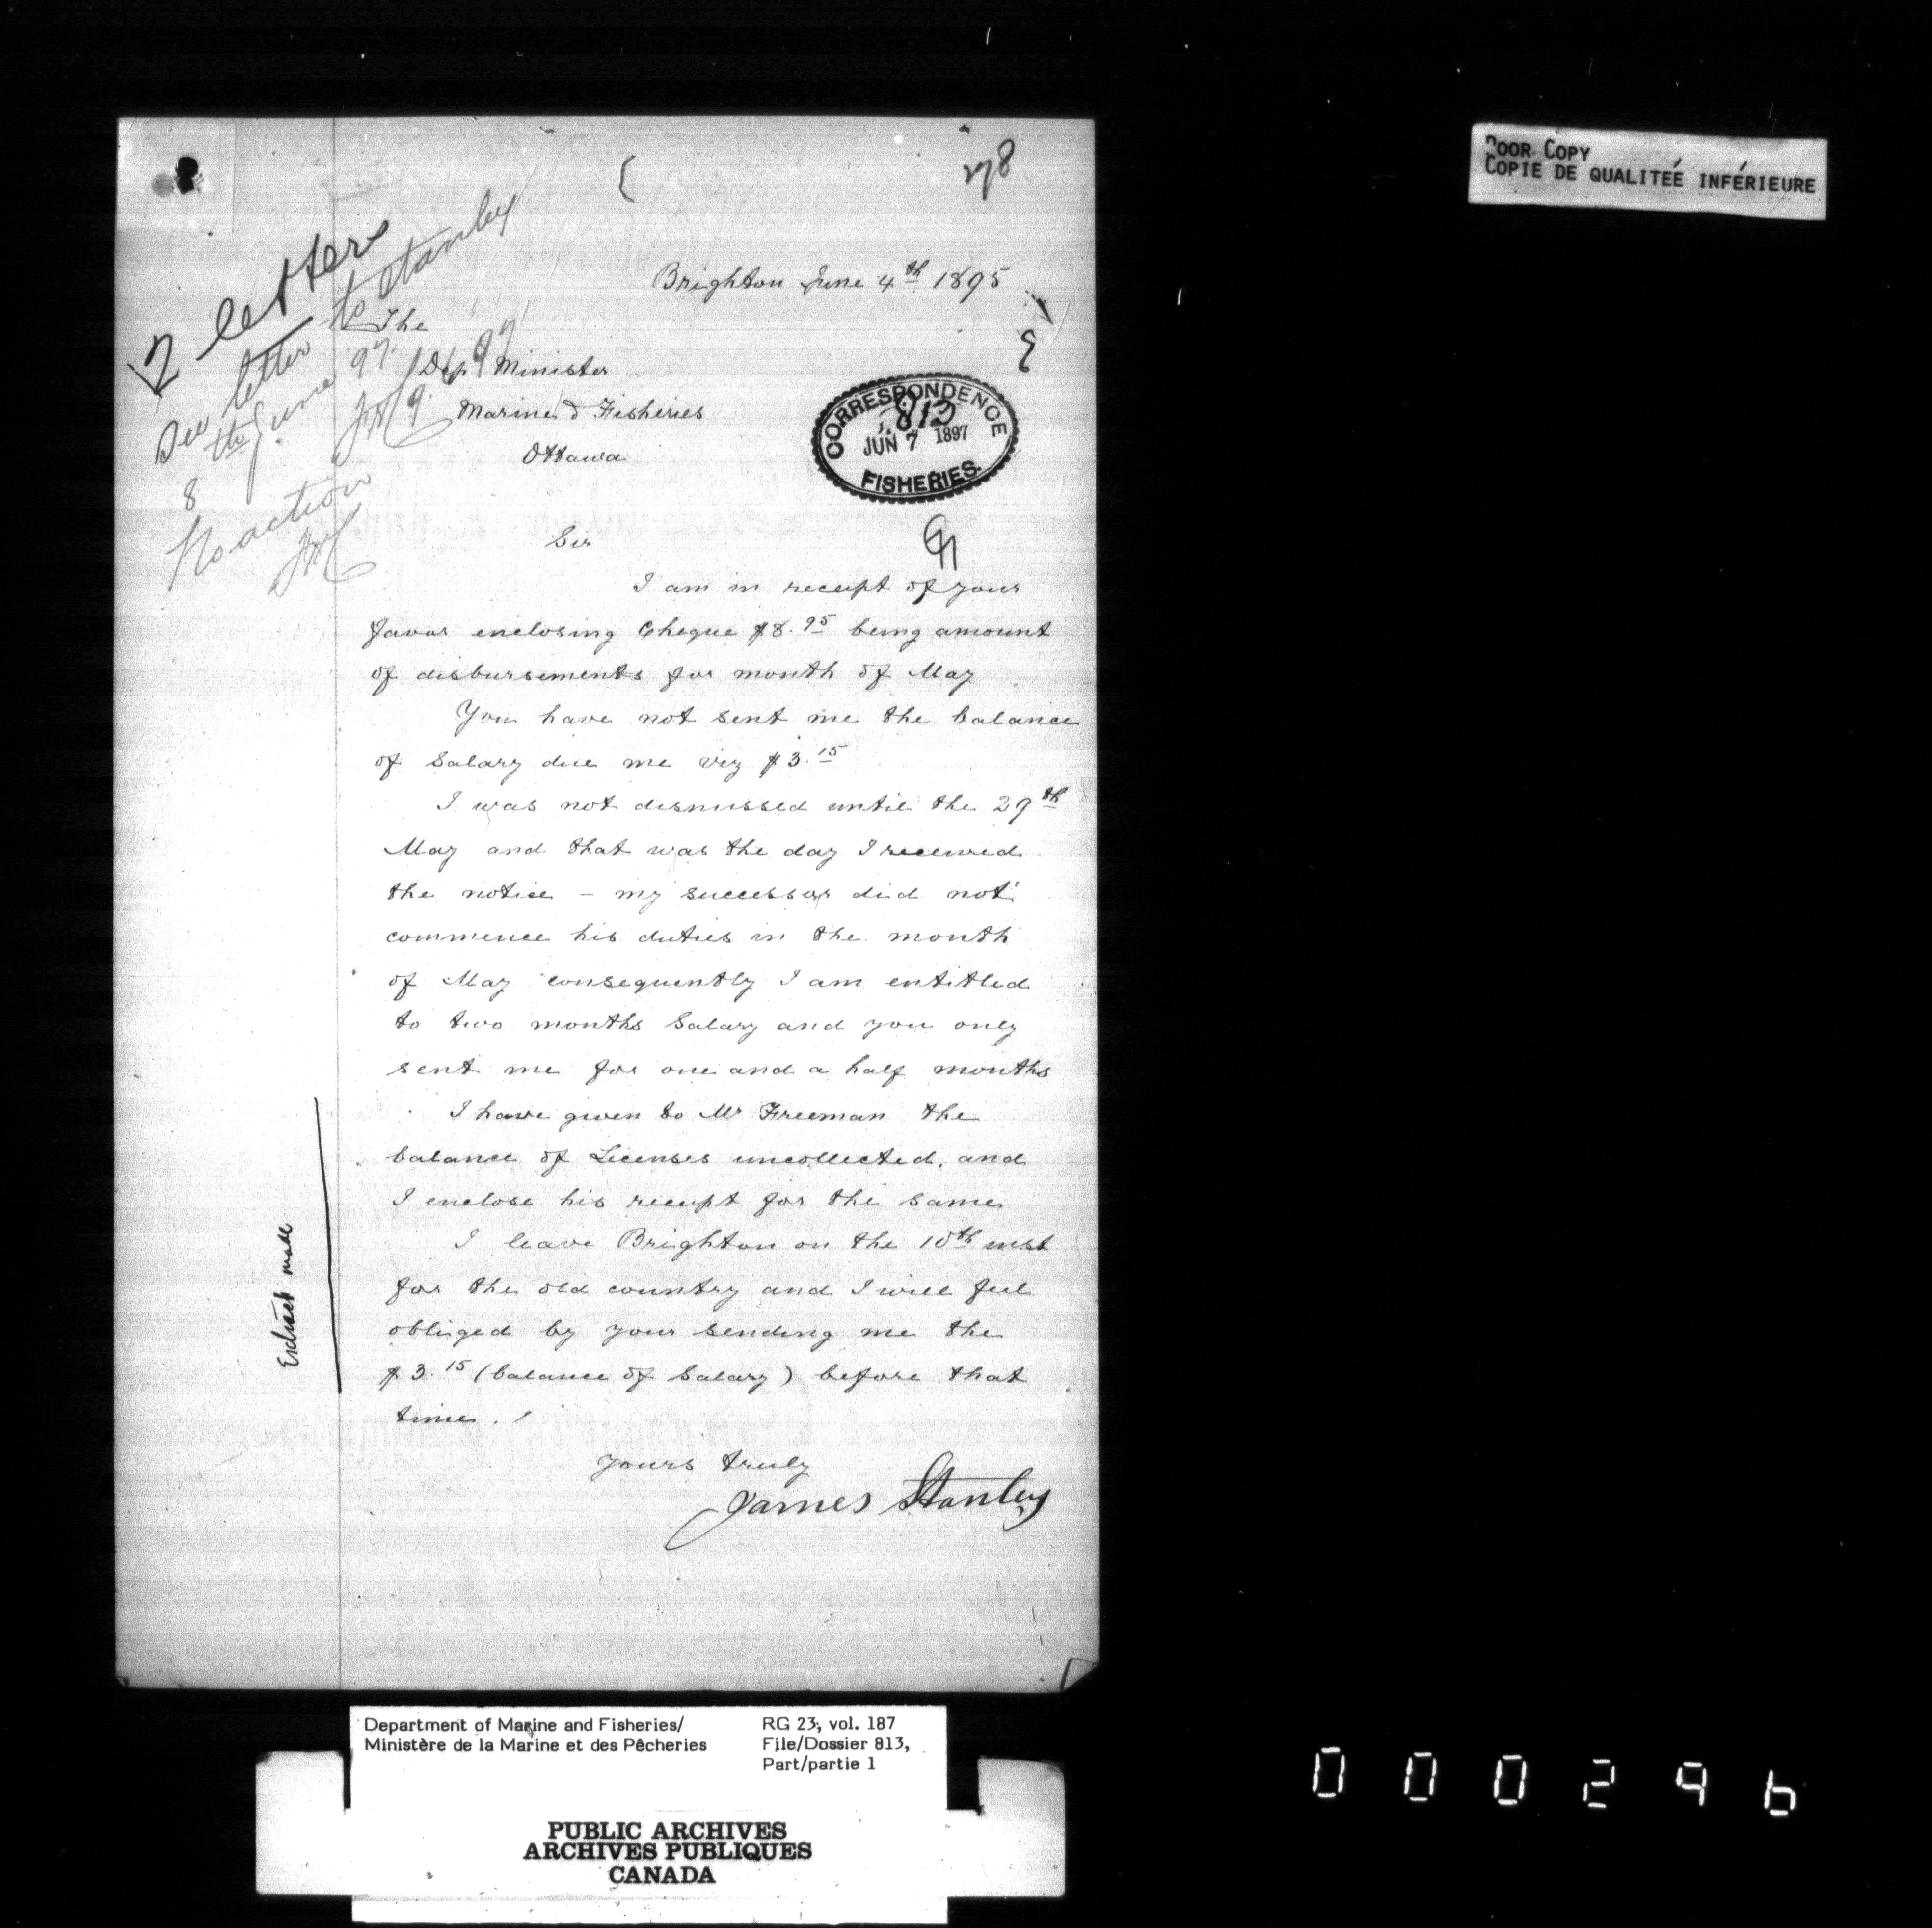 278
Poor Copy
Copie de qualiteé inférieure
2 letters
See letter to Stanley
8th June 97.
No action
Brighton June 4th 1895
The
Dep Minister
Marine & Fisheries
Ottawa
CORRESPONDENCE
813
JUN 7 1897
FISHERIES.
Sir
I am in receipt of your
favor enclosing Cheque $8.95 being amount
of disbursements for month of May
You have not sent me the balance
of Salary due me viz $3.15
I was not dismissed until the 29th
May and that was the day I received
the notice - my successor did not
commence his duties in the month
of May consequently I am entitled
to two months Salary and you only
sent me for one and a half months
I have given to Mr Freeman the
balance of Licenses uncollected, and
I enclose his receipt for the same
I leave Brighton on the 10th inst
for the old country and I will feel
obliged by your sending me the
$3.15 (balance of Salary) before that
time.
Extract made
Yours truly
James Stanley
Department of Marine and Fisheries/
Ministère de la Marine et des Pêcheries
RG 23, vol. 187
File/Dossier 813,
Part/partie 1
PUBLIC ARCHIVES
ARCHIVES PUBLIQUES
CANADA
000296